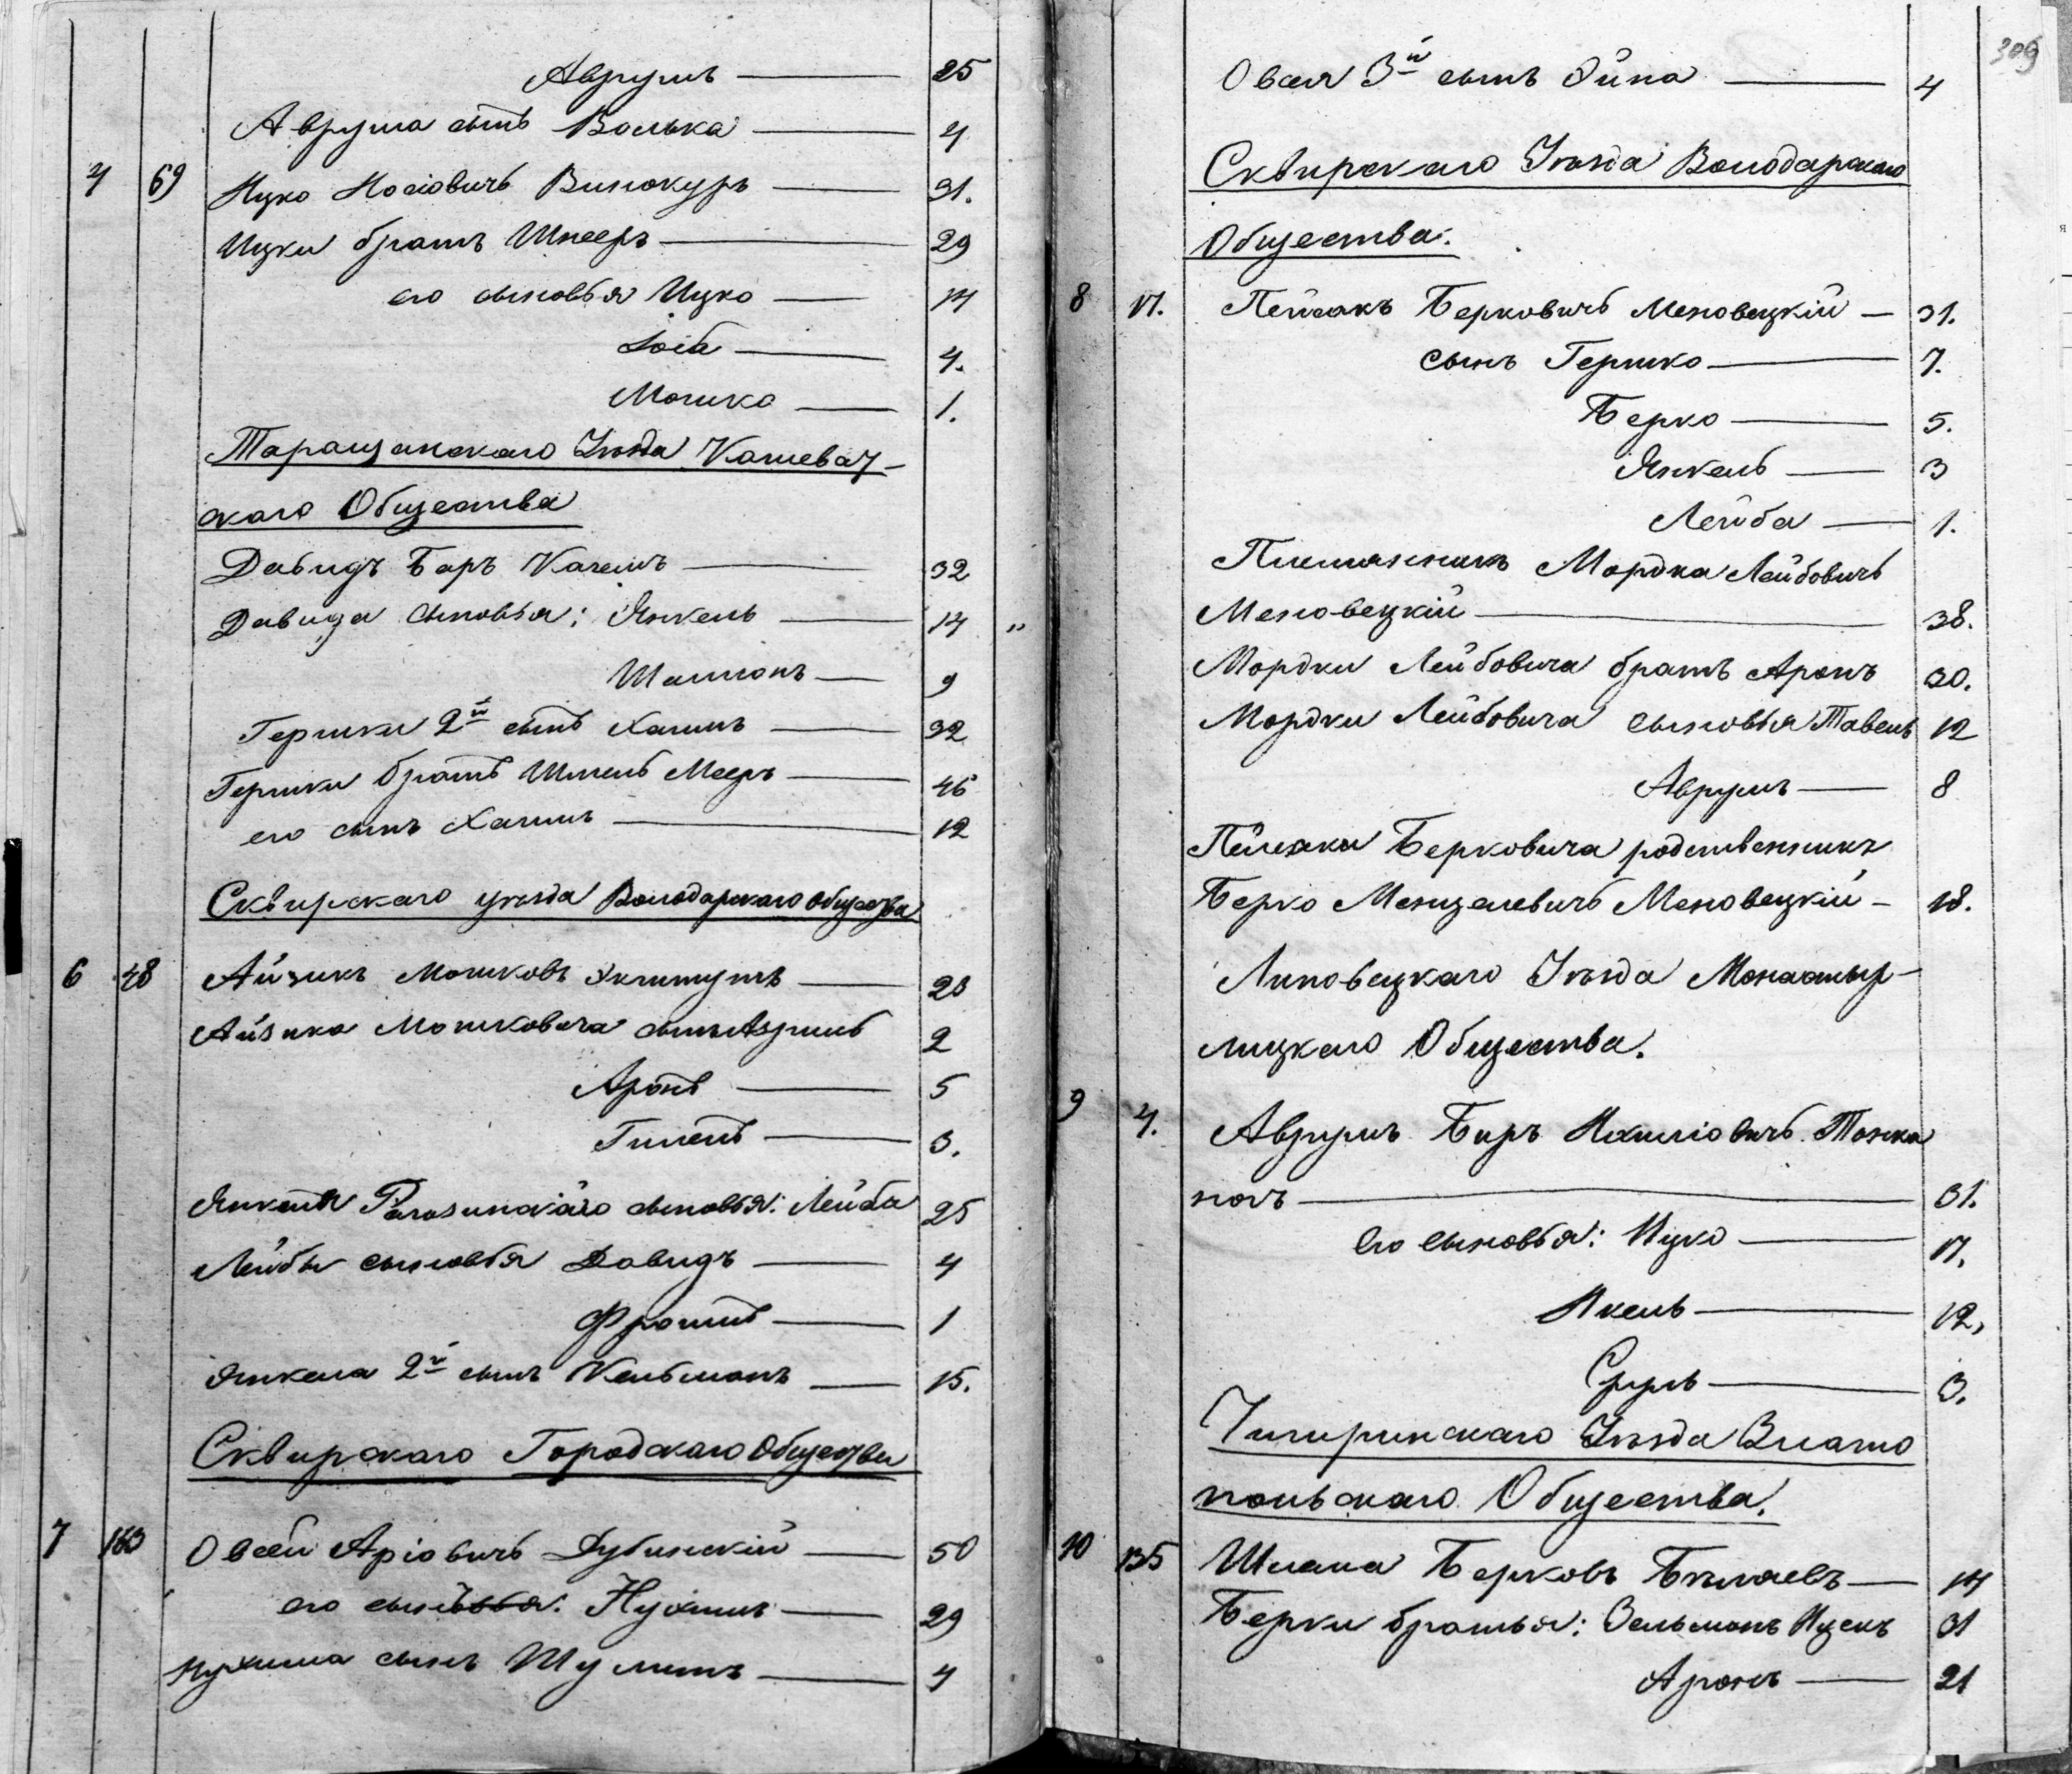 Аврумъ — 25
Аврума сынъ Волька — 4
4 69 ИцкоНосіовичъ Винокуръ — 31.
Ицки братъ Шнееръ — 29
его сыновья Ицко — 14
Іосіа — 4.
Мошко — 1.
Таращанскаго Уѣзда Кошеват-
скаго Общества
Давидъ Беръ Каганъ — 32
Давида сыновья: Янкель — 14 „
Шлиомъ — 9
Гершки 2й сынъ Хаимъ — 32
Гершки братъ Шмель Мееръ — 46
его сынъ Хаимъ — 12
Сквирскаго уѣзда Володарскаго Общества
6 48 Айзикъ Мошковъ — 28
Айзика Мошковича сынъ — 2
Аронъ — 5
Гилель — 3.
Янкеля сыновья: Лейба 25
Лейбы сыновья Давидъ — 4
Фроимъ — 1
Янкеля 2й сынъ Кельманъ — 15.
Сквирскаго Городскаго Общества
7 163 Овсей Аріовичъ Дубинскій — 50
его сыновья. Нухимъ — 29
Нухима сынъ Шулимъ — 4
309
Овсея 3й сынъ Эйна — 4
Сквирскаго Уѣзда Володарскаго
Общества.
8 17. Пейсакъ Берковичъ Меновецкій — 31.
сынъ Гершко — 7.
Берко — 5.
Янкель — 3
Лейба — 1.
Племянникъ Мордка Лейбовичъ
Меновецкій — 38.
Мордки Лейбовича братъ Аронъ 30.
Мордки Лейбовича сыновья Тавель 12
Аврумъ — 8
Пейсаки Берковича родственникъ
Берко Менделевичъ Меновецкій — 18.
Липовецкаго Уѣзда Монастыр-
лицкаго Общества.
9 4. Аврумъ Беръ Ихиліовичъ Тонка
ногъ — 31.
Его сыновья: Ицко — 17.
Икель — 12,
Сруль — 3.
Чигиринскаго Уѣзда Злато
польскаго Общества.
10 135 Шлема Берковъ Бѣлаевъ — 14
Берки братья: Зельманъ Ицекъ 31
Аронъ — 21